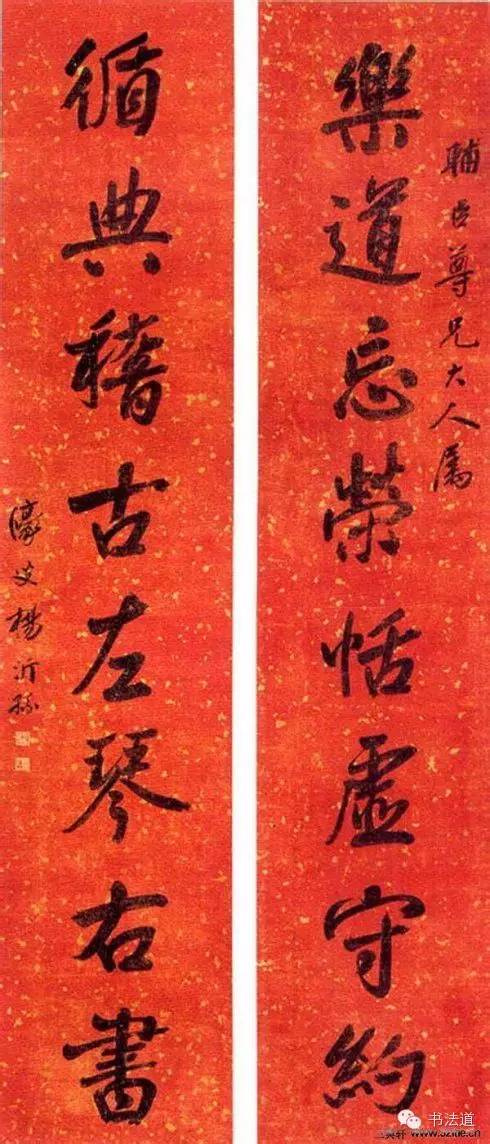 輔臣尊兄大人属
樂道忘榮恬虛守約
循典稽古左琴右書
濠叟楊沂孫
书法道
www.szlide.cn